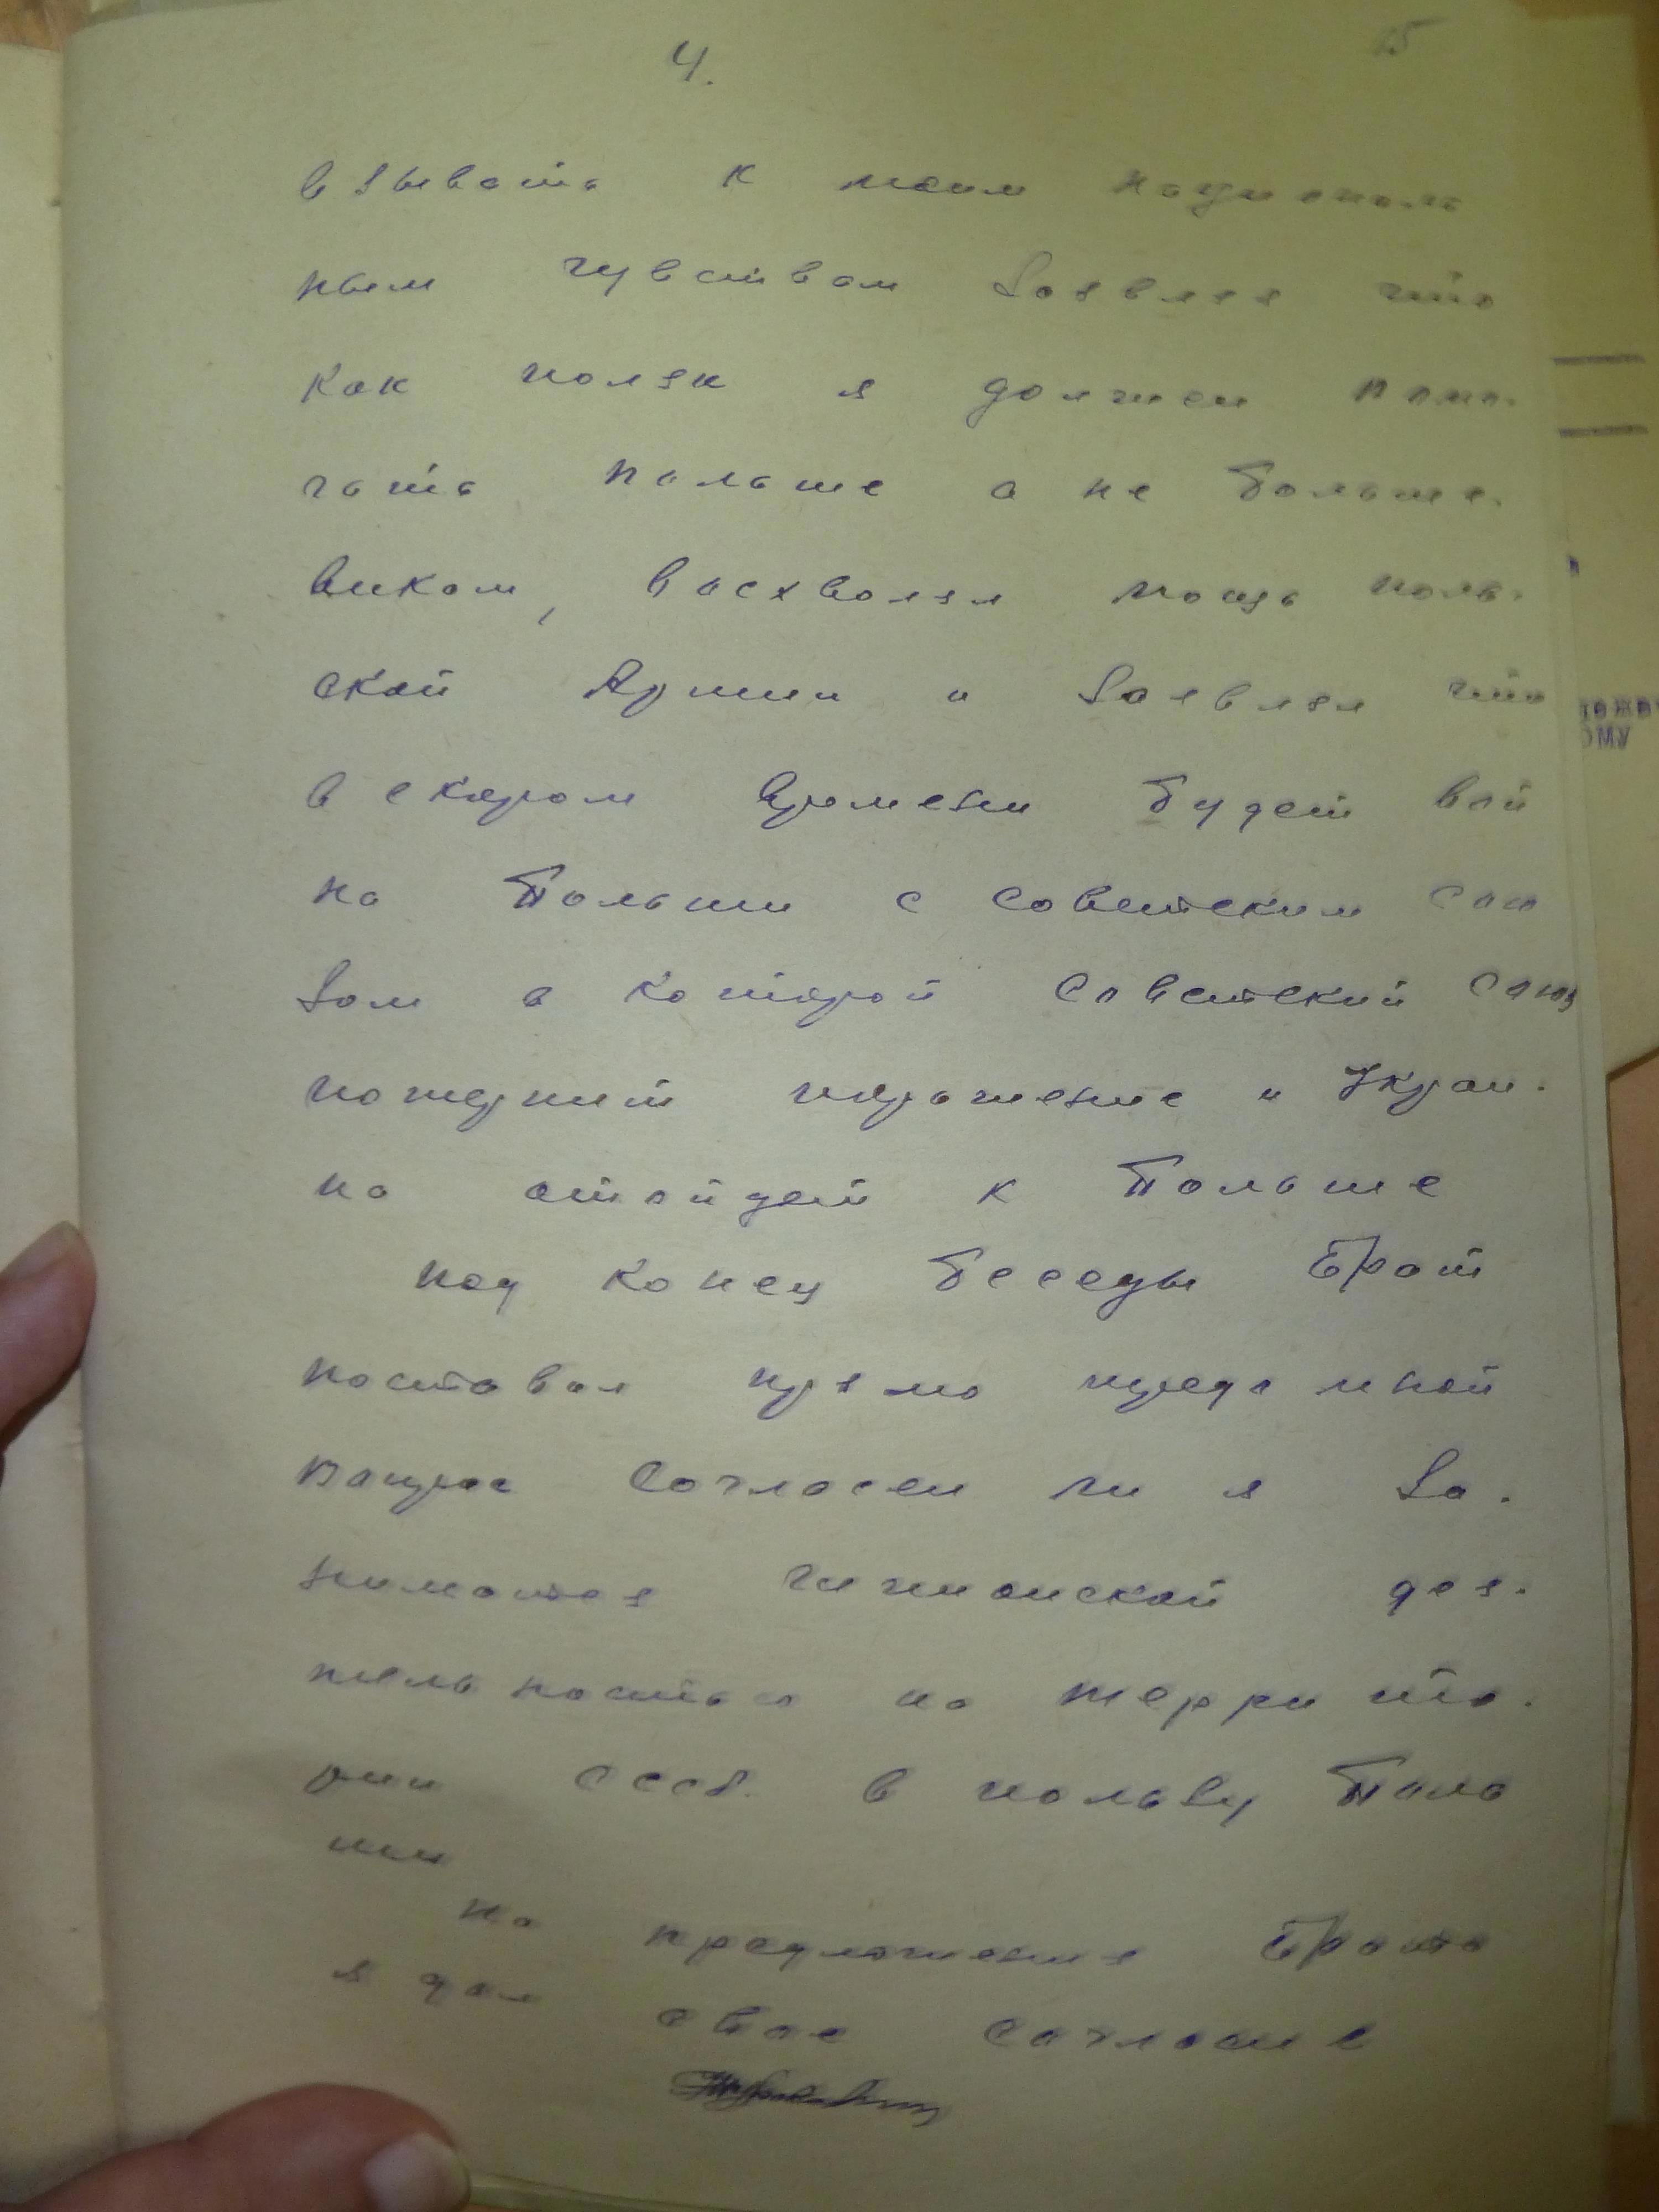 4.
15
взывать к моим националь
ным чувствам Заявляя что
как поляк я должен помо-
гать польше а не больше-
викам, восхвалял мощь поль-
ской Армии и Заявлял что
в скором времени будет вой
на Польши с советским Сою
Зом в которой Советский Союз
потерпит поражение и Украи-
на отойдет к Польше
под конец беседы Брат
поставил прямо предо мной
вопрос Согласен ли я За-
ниматся шпионской дея-
тельностью на террито-
рии СССР. в пользу Поль
ши
на предложения Брата
я дал свое согласие